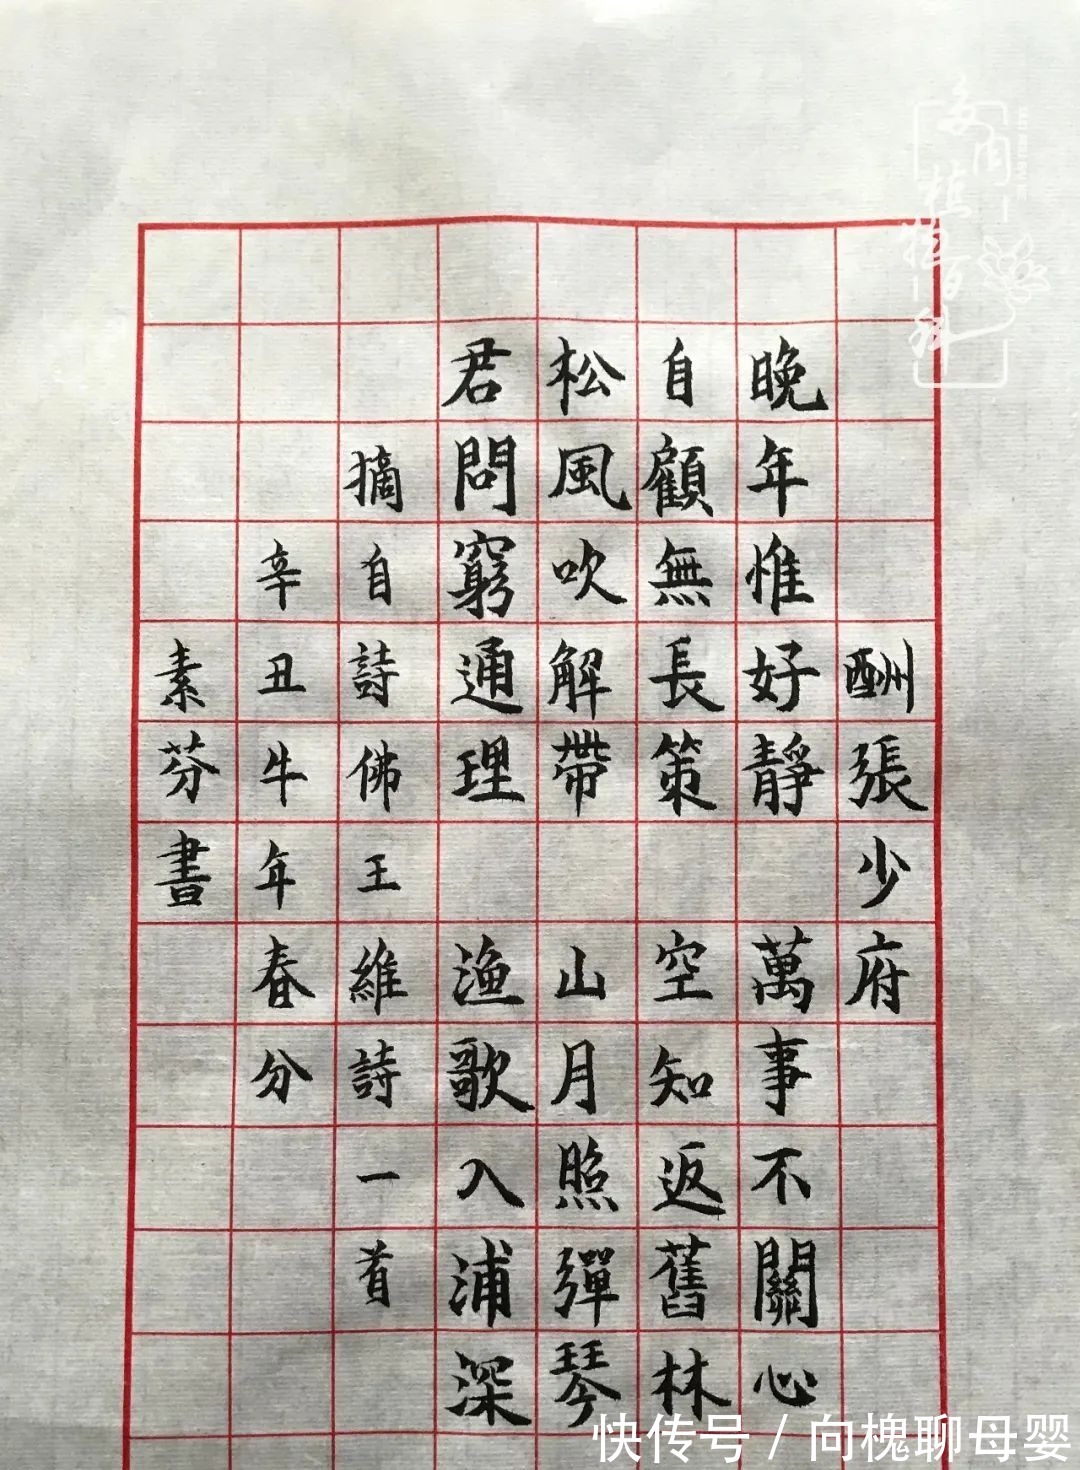 酬張少府
晚年惟好靜 萬事不關心
自顧無長策 空知返舊林
松風吹解帶 山月照彈琴
君問窮通理 漁歌入浦深
摘自詩佛王維詩一首
辛丑牛年春分
素芬書
快传号 / 向槐聊母婴